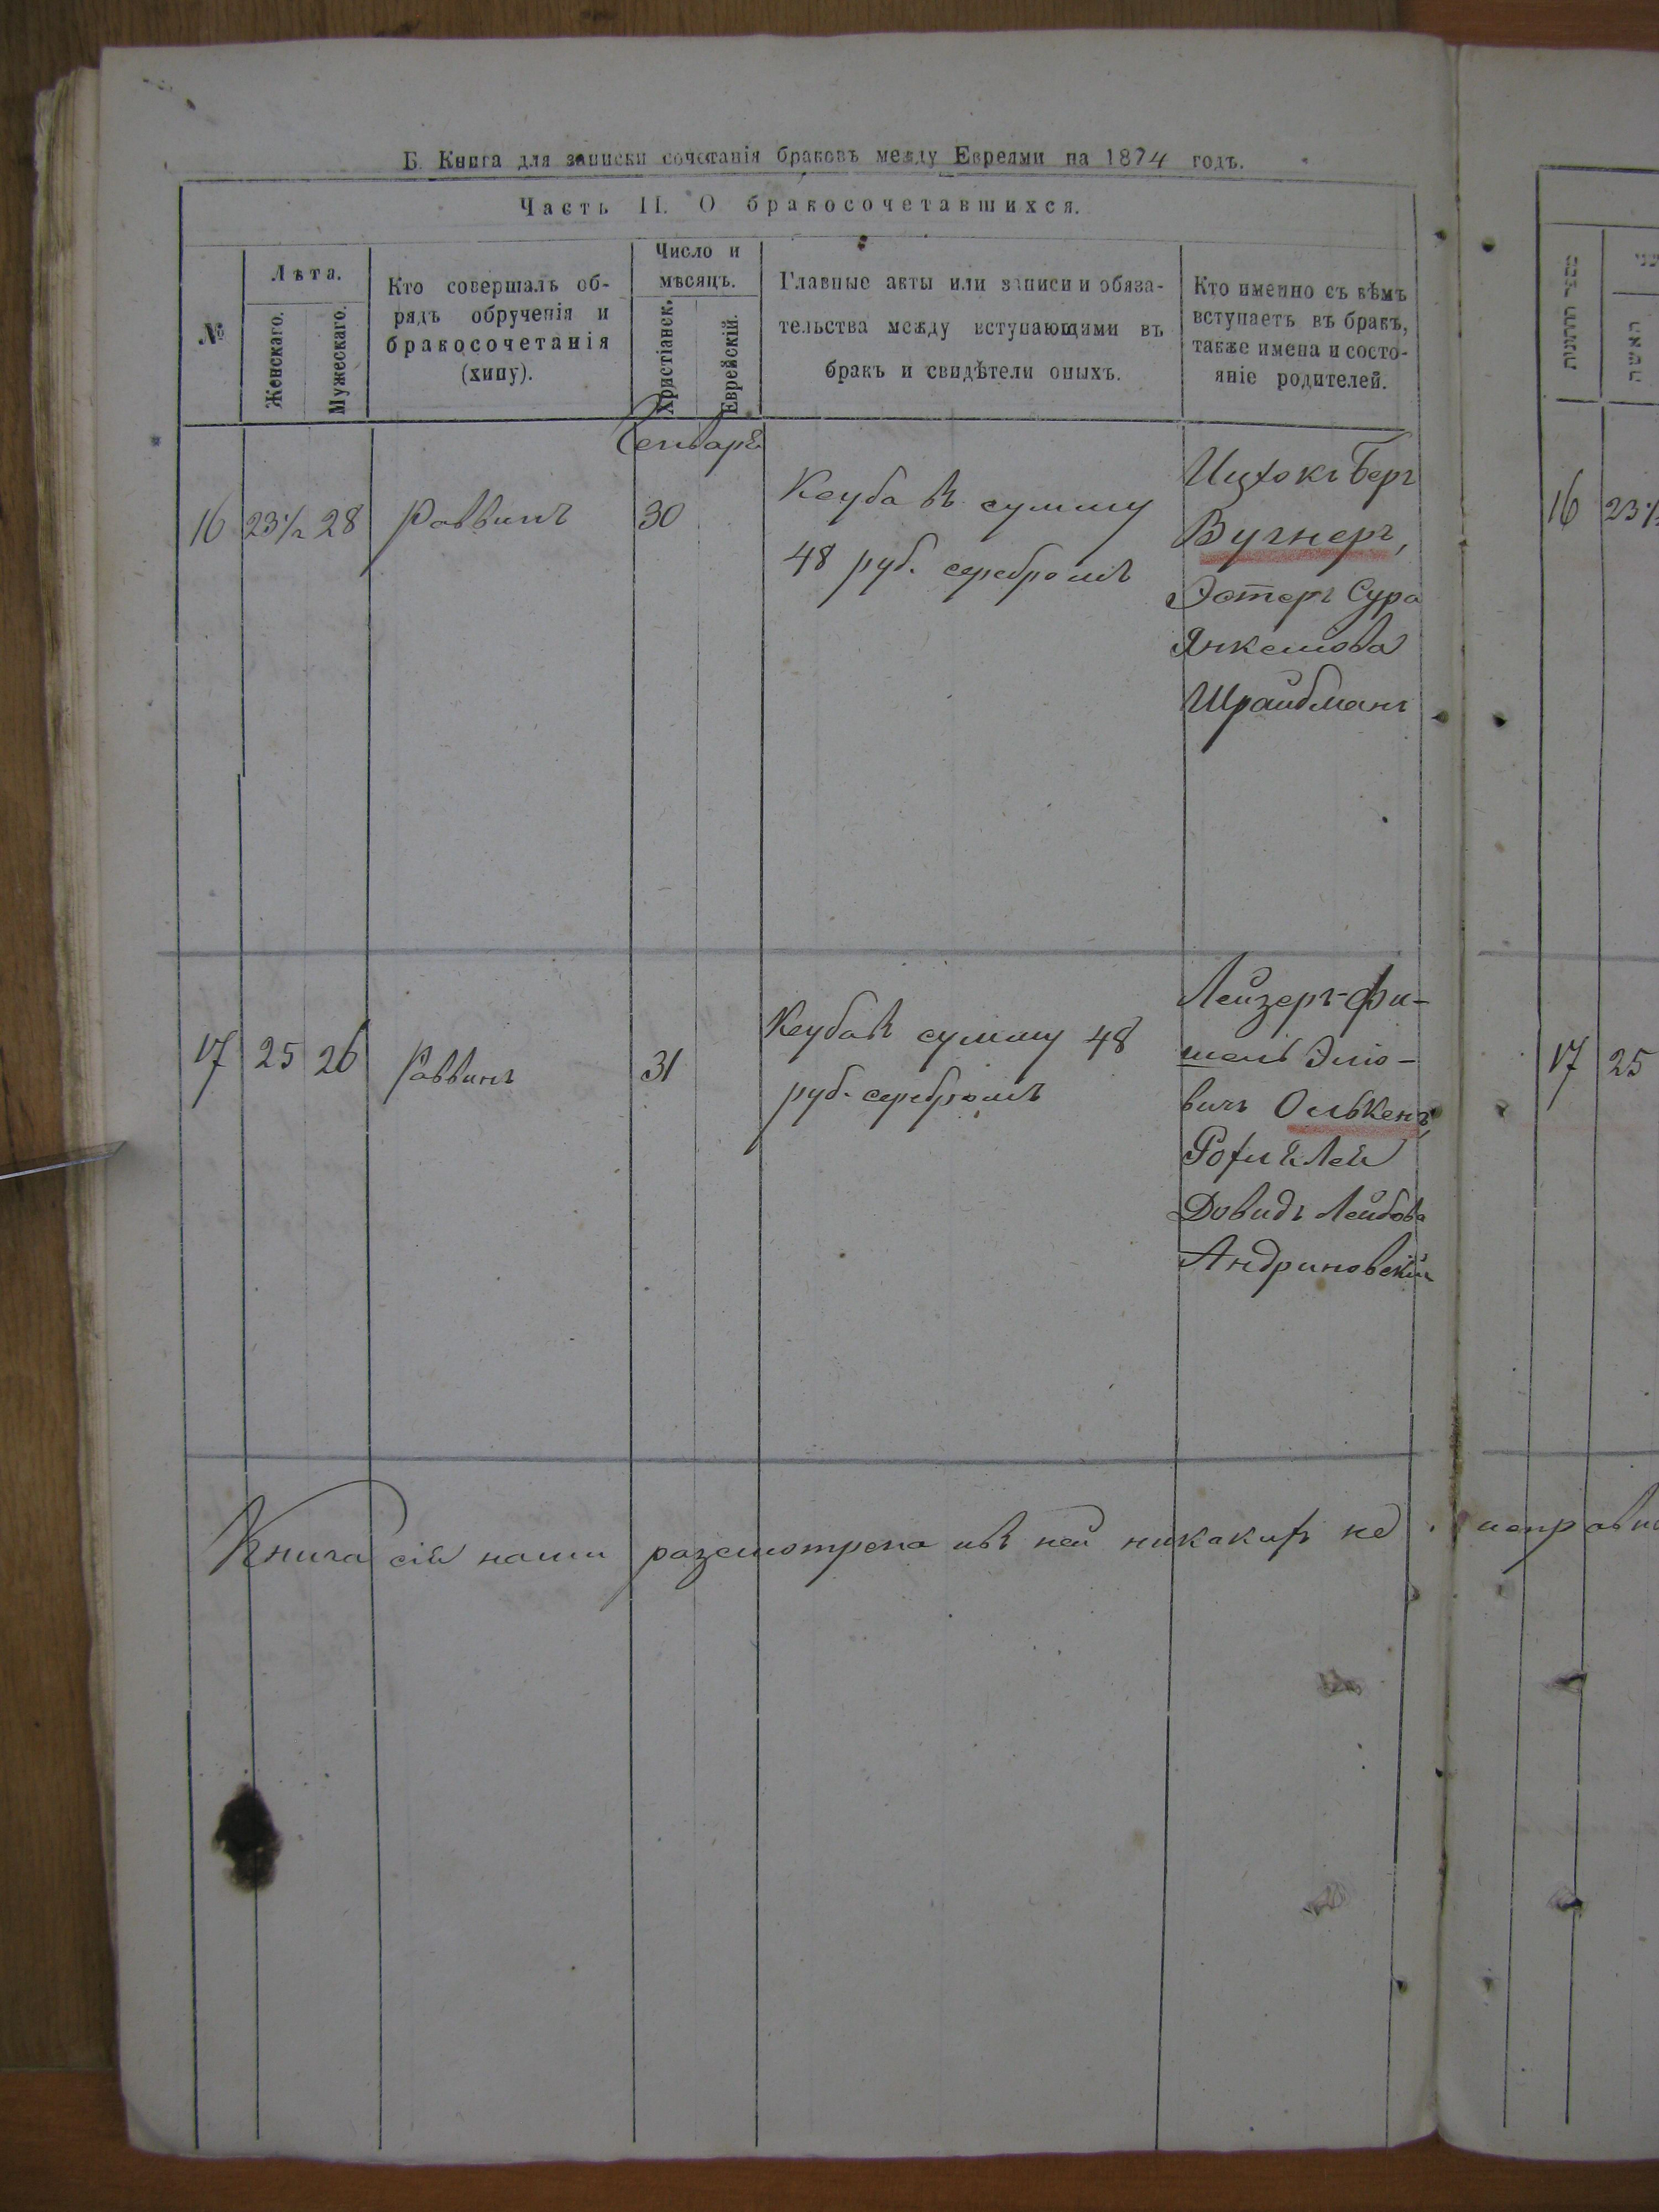 Б. Книга для записки сочетанія браковъ между Евреями на 1874 годъ.
Часть II. О бракосочетавшихся.
№
Лѣта.
Женскаго.
Мужескаго.
Кто совершалъ об-
рядъ обрученія и
бракосочетанія
(хипу).
Число и
мѣсяцъ.
Христіанск.
Еврейскій.
Главные акты или записи и обяза-
тельства между вступающими въ
бракъ и свидѣтели оныхъ.
Кто именно съ кѣмъ
вступаетъ въ бракъ,
также имена и состо-
яніе родителей.
16 23½ 28 Раввинъ 30
Кеуба въ сумму
48 руб. серебромъ
Ицхокъ Беръ
Вугнеръ,
Эстеръ Сура
Янкелова
Шрайбманъ
17 25 26 Раввинъ 31
Кеуба въ сумму 48
руб. серебромъ
Лейзеръ-Фи-
шель Эліо-
вичъ Олькенъ,
Рохиля Лея
Довидъ Лейбова
Андриновскій
Книга сія нами разсмотрена и въ ней никакихъ не
16 23½
17 25